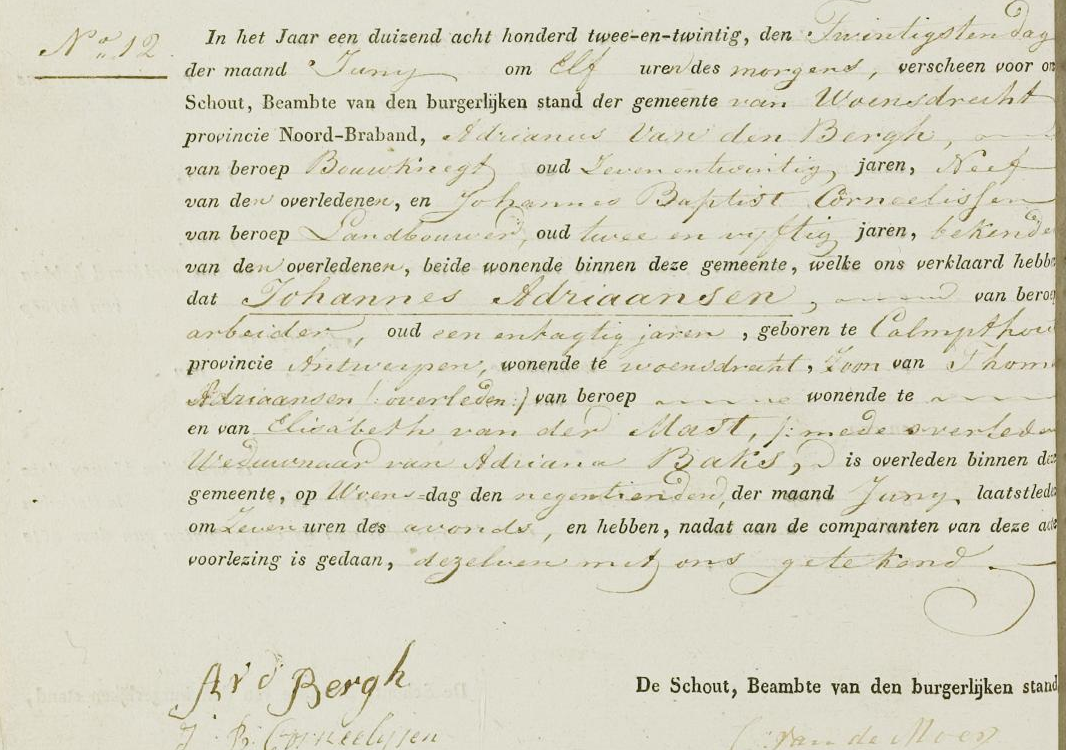 No. 12
In het Jaar een duizend acht honderd twee-en-twintig, den Twintigsten dag
der maand Juny om Elf uren des morgens, verscheen voor on
Schout, Beambte van den burgerlijken stand der gemeente van Woensdrecht
provincie Noord-Braband, Adrianus Van den Bergh,
van beroep Bouwknegt oud Zevenentwintig jaren, Neef
van den overledenen, en Johannes Baptist Corneelissen
van beroep Landbouwer, oud twee en vyftig jaren, bekende
van den overledenen, beide wonende binnen deze gemeente, welke ons verklaard hebbe
dat Johannes Adriaansen, van beroe
arbeider, oud een entagtig jaren, geboren te Calmpthou
provincie Antwerpen, wonende te woensdrecht, Zoon van Thom
Adriaansen (:overleden:) van beroep wonende te
en van Elisabeth van der Mast, (:mede overlede
Weduwnaar van Adriana Baks, is overleden binnen dez
gemeente, op Woens-dag den negentienden, der maand Juny laatstlede
om Zeven uren des avonds, en hebben, nadat aan de comparanten van deze acte
voorlezing is gedaan, dezelven met ons getekend.
A V d Bergh
De Schout, Beambte van den burgerlijken stand
J B Corneelissen
van de Moer